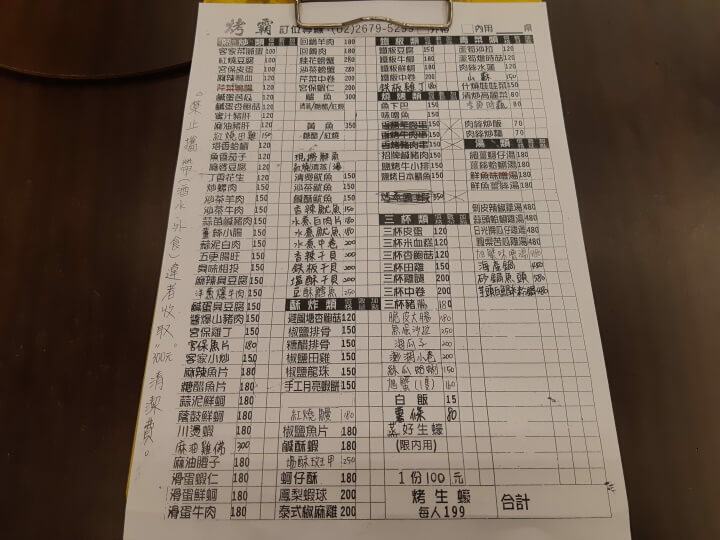 烤霸 訂位專線:(02)2679-5299 內用
禁止攜帶(酒水外食)違者收取100元清潔費。
客家菜脯蛋 100
紅燒豆腐 100
宮保皮蛋 100
鹹蛋苦瓜
鹹蛋杏鮑菇 120
蜜汁豬肝
麻油豬肝 150
紅燒田雞 150
塔香蛤蠣 120
魚香茄子 120
麻婆豆腐 120
丁香花生 120
炒螺肉 150
沙茶羊肉 150
沙茶牛肉 150
蒜苗鹹豬肉 150
薑絲小腸 150
蒜泥白肉 150
五更腸旺 150
臭味相投 150
麻辣臭豆腐 150
洋蔥爆牛肉 150
鹹蛋臭豆腐 150
醬爆山豬肉 150
宮保雞丁 150
宮保魚片 180
客家小炒 150
麻辣魚片 180
糖醋魚片 180
蒜泥鮮蚵 180
蔭鼓鮮蚵 180
川燙蝦 180
麻油雞佛 300
麻油腰子 180
滑蛋蝦仁 180
滑蛋鮮蚵 180
滑蛋牛肉 180
回鍋羊肉 180
回鍋肉 180
桂花螃蟹 280
沙茶螃蟹 280
芹菜中卷 200
宮保蝦仁 200
鱸魚 300
清蒸/糖醋/紅燒
黃魚 350
糖醋/紅燒
現撈鮮魚
清燙魷魚 150
沙茶魷魚 150
鹹酥魷魚 150
香辣魷魚 150
水煮白肉片 180
水煮魷魚 180
水煮中卷 200
香辣干貝 200
鐵板干貝 200
塩酥干貝 200
豆酥鱈魚 250
酥炸類
避風塘杏鮑菇 120
椒鹽排骨 150
糖醋排骨 150
椒鹽田雞 150
椒鹽龍珠 150
手工月亮蝦餅 150
紅燒鰻 180
椒鹽魚片 180
鹹酥蝦 180
塩酥斑甲 250
蚵仔酥 180
鳳梨蝦球 200
泰式椒麻雞 200
鐵板類
鐵板豆腐 150
鐵板牛柳 180
鐵板鮮蚵 180
鐵板中卷 200
鐵板雞丁 180
燒烤類
魚下巴 150
味噌魚 150
招牌鹹豬肉 150
鹽烤牛小排 150
鹽烤日本鯛魚 150
三杯類
三杯皮蛋 120
三杯米血糕 120
三杯杏鮑菇 120
三杯田雞 150
三杯雞 150
三杯中卷 200
三杯豬腸 180
脆皮大腸 180
海瓜子 200
澎湖小卷 200
絲瓜蛤蜊 150
旭蟹(1隻) 160
白飯 15
薯條 80
蒸好生蠔
(限內用)
1份100元
烤生蠔
每人199
青菜類
蘆筍沙拉 120
蘆筍爆時菇 120
肉絲水蓮 120
山蘇 150
什燴娃娃菜 150
清炒高麗菜 80
季節時蔬 80
肉絲炒飯 70
肉絲炒麵 70
湯類
薑薑蚵仔湯 180
薑絲蛤蠣湯 180
鮮魚味噌湯 180
鮮魚薑絲湯 180
剝皮辣椒雞湯 480
蒜頭蛤蠣雞湯 480
鳳梨苦瓜雞湯 480
旭蟹味噌湯 450
海產鍋 450
砂鍋魚頭 580
合計